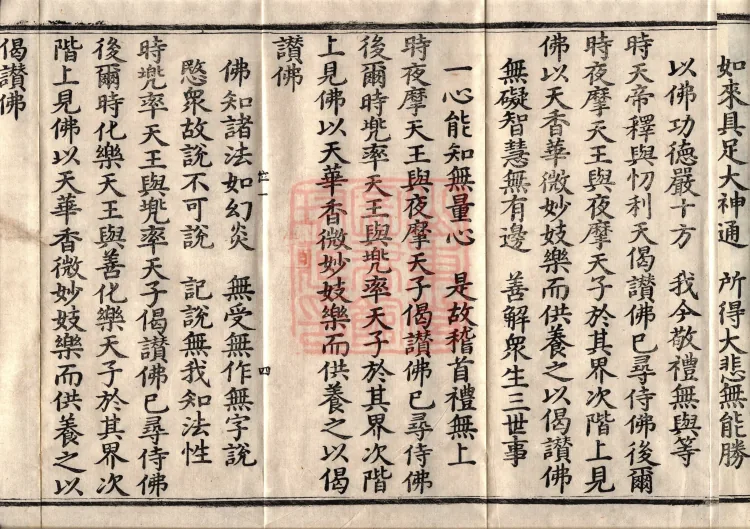 如來具足大神通　所得大悲無能勝
以佛功德嚴十方　我今敬禮無與等
時天帝釋與忉利天偈讚佛已尋侍佛後爾
時夜摩天王與夜摩天子於其界次階上見
佛以天香華微妙妓樂而供養之以偈讚佛
無礙智慧無有邊　善解衆生三世事
一心能知無量心　是故稽首禮無上
時夜摩天王與夜摩天子偈讚佛已尋侍佛
後爾時兜率天王與兜率天子於其界次階
上見佛以天華香微妙妓樂而供養之以偈
讚佛
四
佛知諸法如幻炎　無受無作無字說
愍衆故說不可說　記說無我知法性
時兜率天王與兜率天子偈讚佛已尋侍佛
後爾時化樂天王與善化樂天子於其界次
階上見佛以天華香微妙妓樂而供養之以
偈讚佛